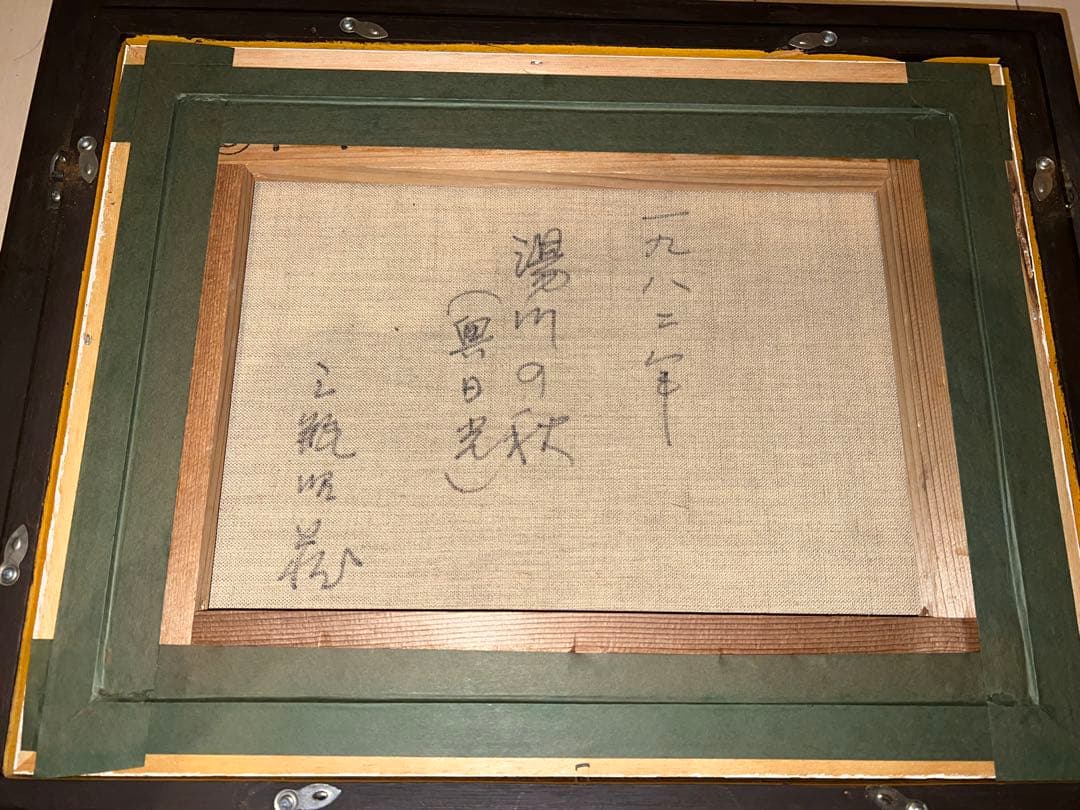 一九八二年
湯川の秋
(奥日光)
三瓶